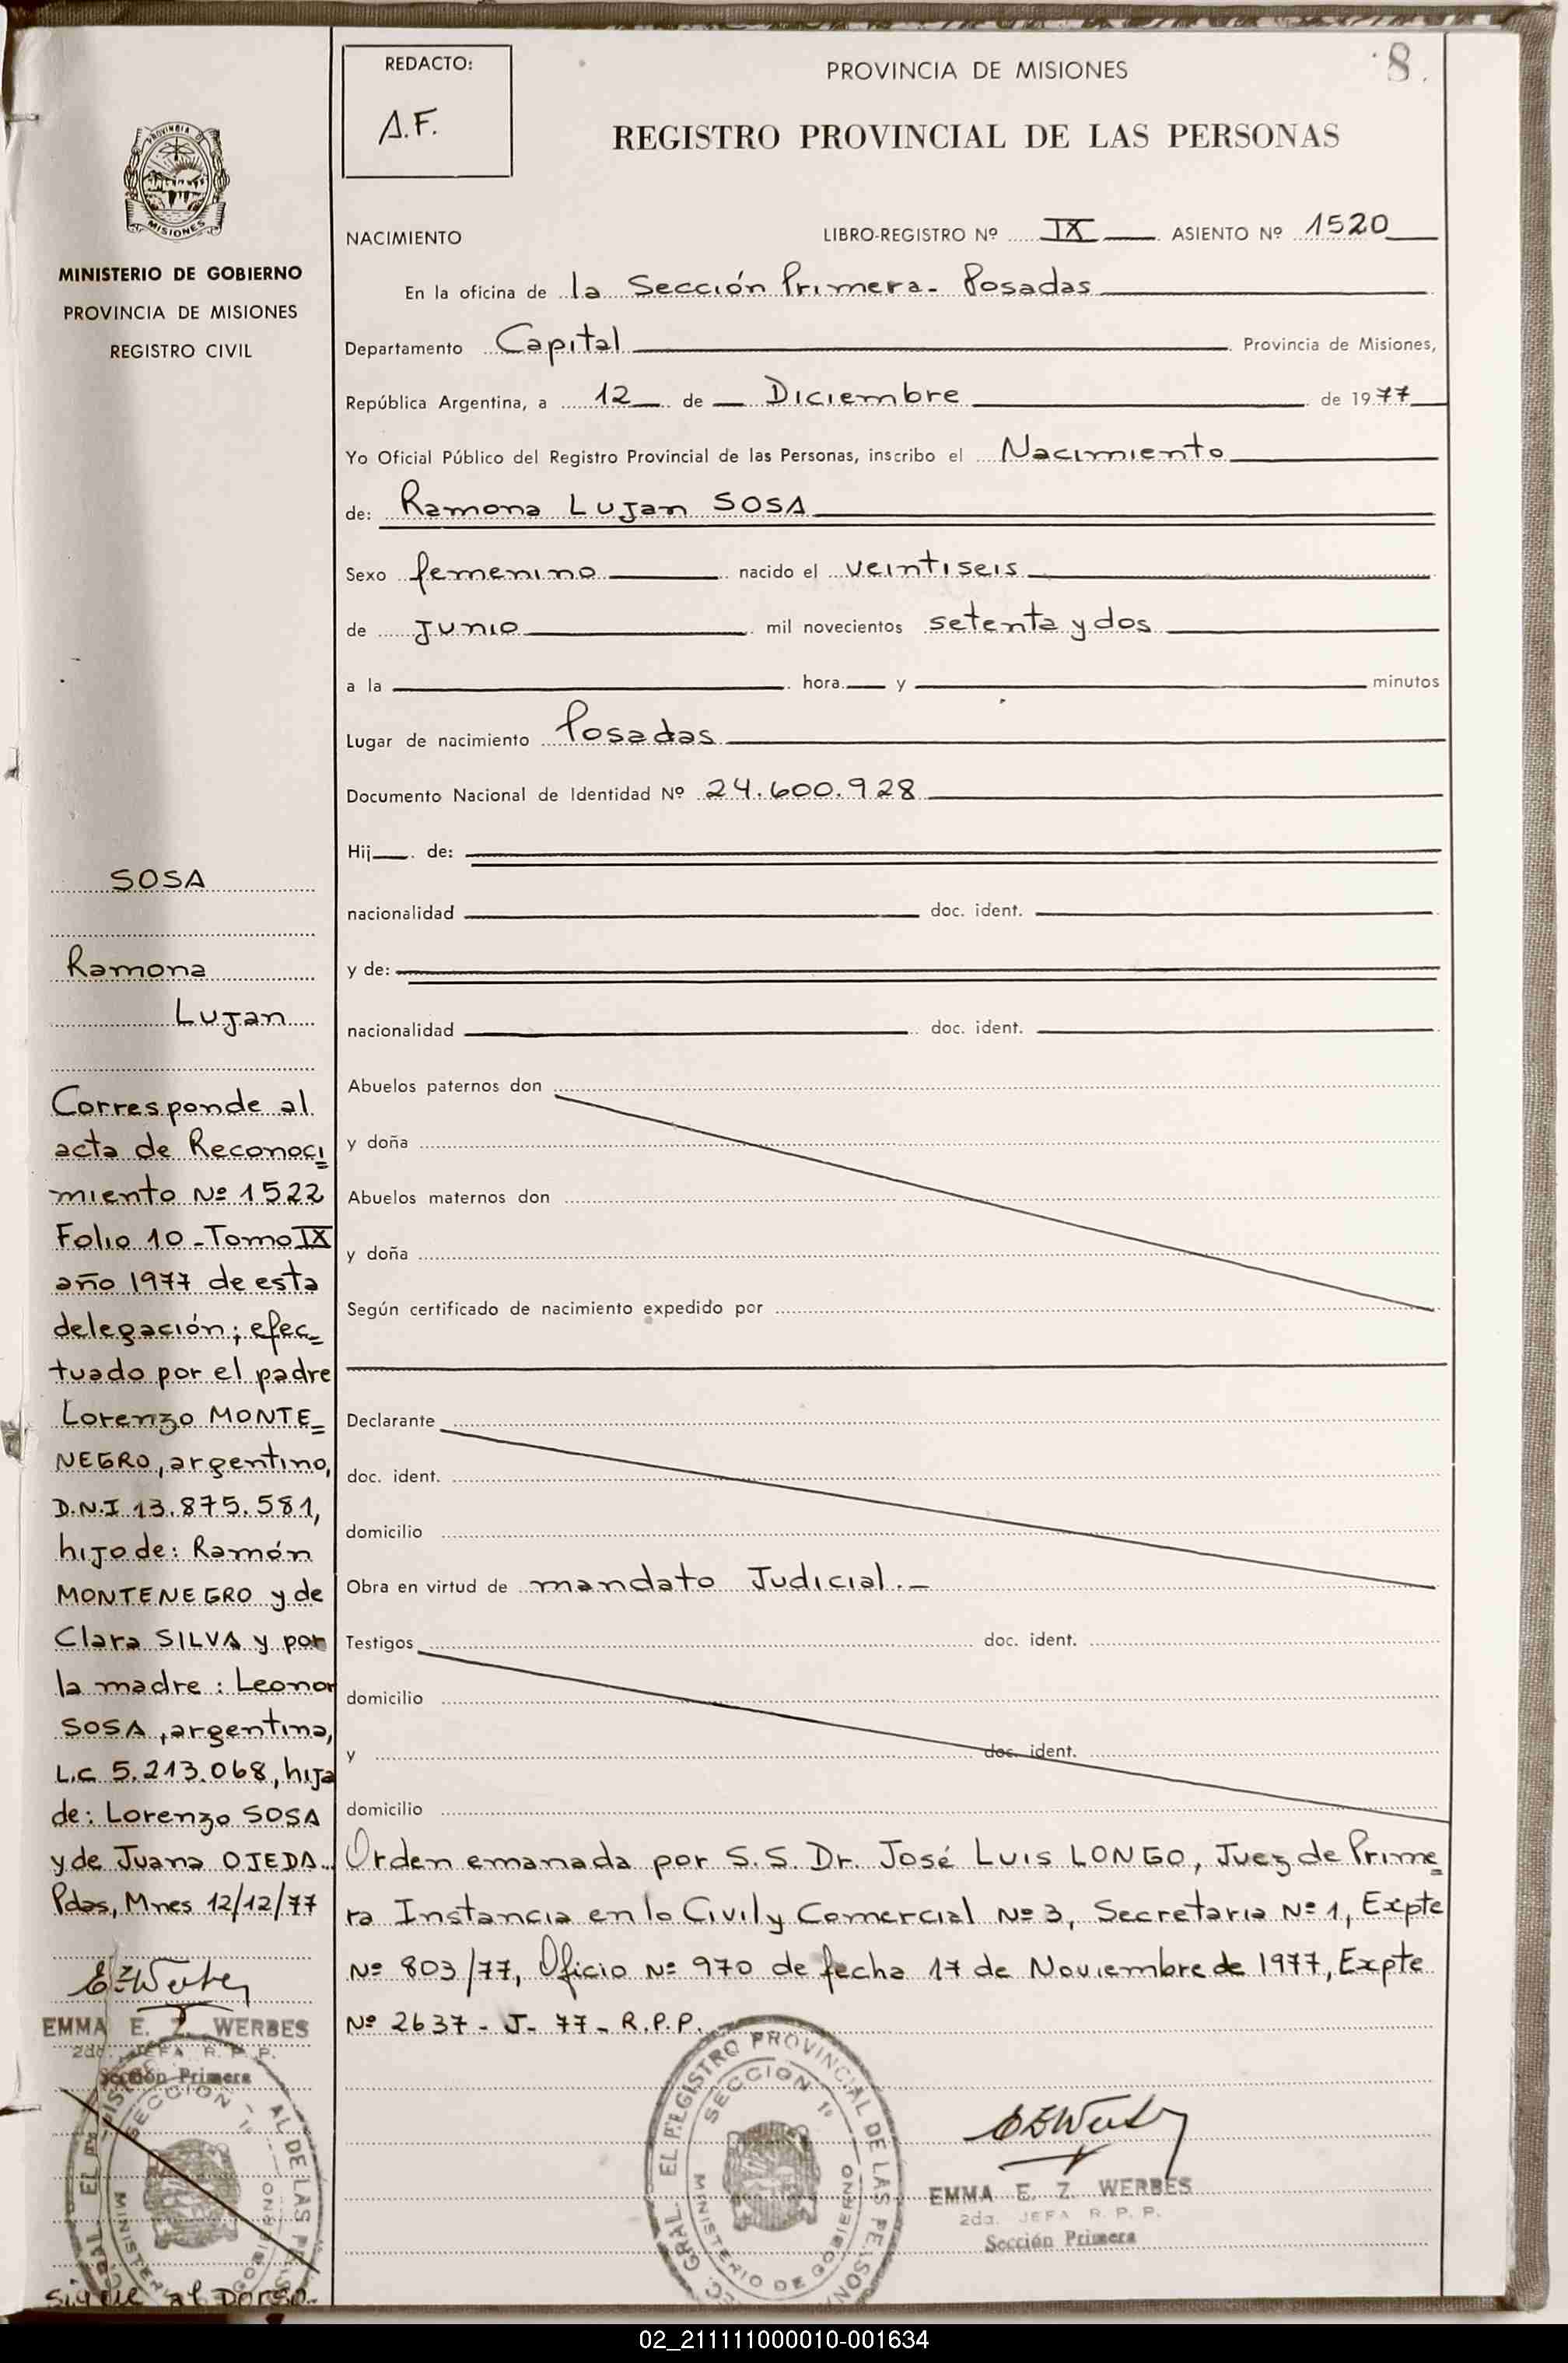 REDACTO:
A.F.
PROVINCIA DE MISIONES
8.
REGISTRO PROVINCIAL DE LAS PERSONAS
NACIMIENTO LIBRO-REGISTRO Nº IX ASIENTO Nº 1520
En la oficina de la Sección Primera - Posadas
Departamento Capital Provincia de Misiones,
República Argentina, a 12 de Diciembre de 1977
Yo Oficial Público del Registro Provincial de las Personas, inscribo el Nacimiento
de: Ramona Lujan SOSA
Sexo femenino nacido el veintiseis
de Junio mil novecientos setenta y dos
a la hora y minutos
Lugar de nacimiento Posadas
Documento Nacional de Identidad Nº 24.600.928
Hij de:
nacionalidad doc. ident.
y de:
nacionalidad doc. ident.
Abuelos paternos don
y doña
Abuelos maternos don
y doña
Según certificado de nacimiento expedido por
Declarante
doc. ident.
domicilio
Obra en virtud de mandato Judicial.-
Testigos doc. ident.
domicilio
y doc. ident.
domicilio
Orden emanada por S.S. Dr. José Luis LONGO, Juez de Prime=
ra Instancia en lo Civil y Comercial Nº 3, Secretaria Nº 1, Expte
Nº 803/77, Oficio Nº 970 de fecha 17 de Noviembre de 1977, Expte
Nº 2637 - J - 77 - R.P.P.
EL REGISTRO PROVINCIAL DE LAS PERSONAS
SECCION 1ª
MINISTERIO DE GOBIERNO
GRAL.
EMMA E. Z. WERBES
2da. JEFA R. P. P.
Sección Primera
PROVINCIA DE
MISIONES
MINISTERIO DE GOBIERNO
PROVINCIA DE MISIONES
REGISTRO CIVIL
SOSA
Ramona
Lujan
Corresponde al
acta de Reconoci=
miento Nº 1522
Folio 10 - Tomo IX
año 1977 de esta
delegación; efec=
tuado por el padre
Lorenzo MONTE=
NEGRO, argentino,
D.N.I 13.875.581,
hijo de: Ramón
MONTENEGRO y de
Clara SILVA y por
la madre: Leonor
SOSA, argentina,
L.C 5.213.068, hija
de: Lorenzo SOSA
y de Juana OJEDA.
Pdas, Mnes 12/12/77
EMMA E. Z. WERBES
2da. JEFA R. P. P.
Sección Primera
SECCION 1ª
AL DE LAS PERS
MINISTERI
GOBIERNO
Sigue al Dorso.-
02_211111000010-001634